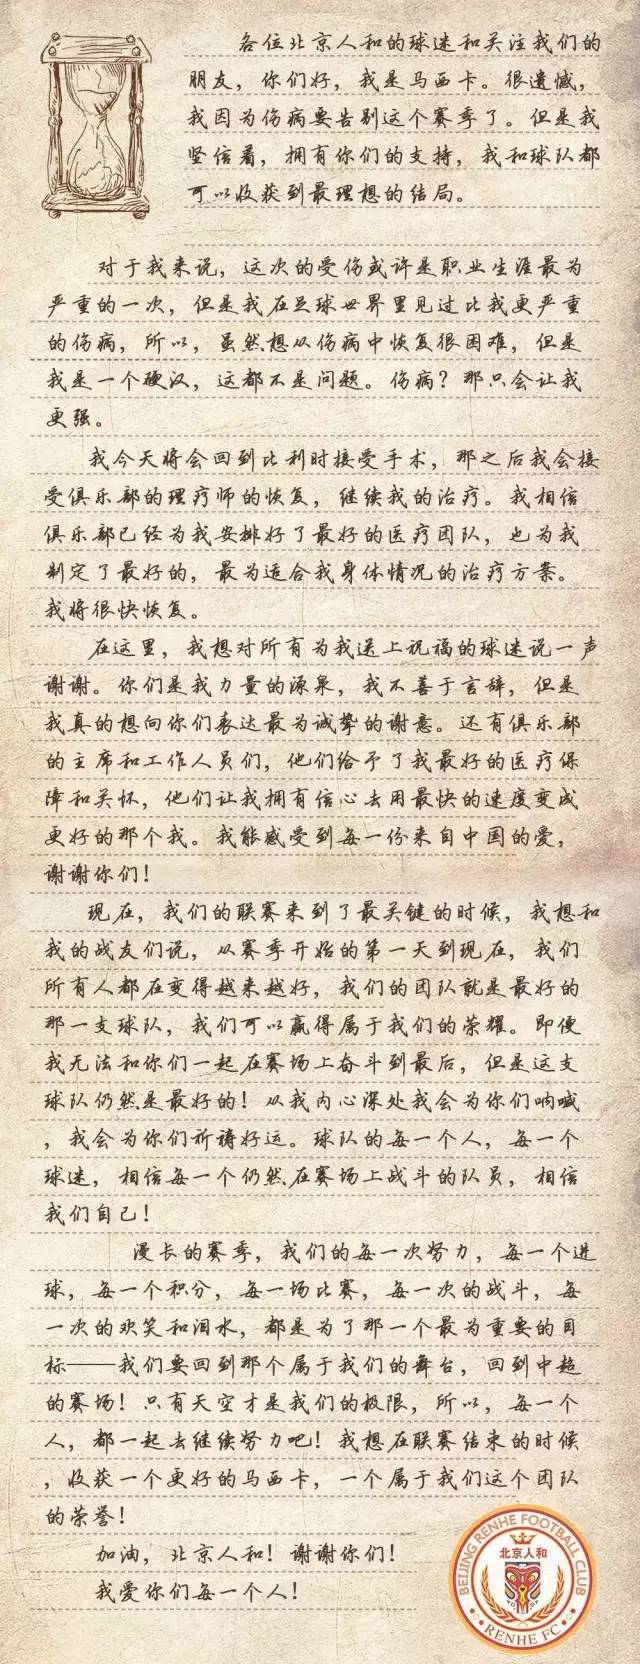 各位北京人和的球迷和关注我们的
朋友，你们好，我是马西卡。很遗憾，
我因为伤病要告别这个赛季了。但是我
坚信着，拥有你们的支持，我和球队都
可以收获到最理想的结局。
对于我来说，这次的受伤或许是职业生涯最为
严重的一次，但是我在足球世界里见过比我更严重
的伤病，所以，虽然想从伤病中恢复很困难，但是
我是一个硬汉，这都不是问题。伤病？那只会让我
更强。
我今天将会回到比利时接受手术，那之后我会接
受俱乐部的理疗师的恢复，继续我的治疗。我相信
俱乐部已经为我安排好了最好的医疗团队，也为我
制定了最好的，最为适合我身体情况的治疗方案。
我将很快恢复。
在这里，我想对所有为我送上祝福的球迷说一声
谢谢。你们是我力量的源泉，我不善于言辞，但是
我真的想向你们表达最为诚挚的谢意。还有俱乐部
的主席和工作人员们，他们给予了我最好的医疗保
障和关怀，他们让我拥有信心去用最快的速度变成
更好的那个我。我能感受到每一份来自中国的爱，
谢谢你们！
现在，我们的联赛来到了最关键的时候，我想和
我的战友们说，从赛季开始的第一天到现在，我们
所有人都在变得越来越好，我们的团队就是最好的
那一支球队，我们可以赢得属于我们的荣耀。即便
我无法和你们一起在赛场上奋斗到最后，但是这支
球队仍然是最好的！从我内心深处我会为你们呐喊
，我会为你们祈祷好运。球队的每一个人，每一个
球迷，相信每一个仍然在赛场上战斗的队员，相信
我们自己！
漫长的赛季，我们的每一次努力，每一个进
球，每一个积分，每一场比赛，每一次的战斗，每
一次的欢笑和泪水，都是为了那一个最为重要的目
标——我们要回到那个属于我们的舞台，回到中超
的赛场！只有天空才是我们的极限，所以，每一个
人，都一起去继续努力吧！我想在联赛结束的时候
，收获一个更好的马西卡，一个属于我们这个团队
的荣誉！
加油，北京人和！谢谢你们！
我爱你们每一个人！
BEIJING RENHE FOOTBALL CLUB
北京人和
RENHE FC